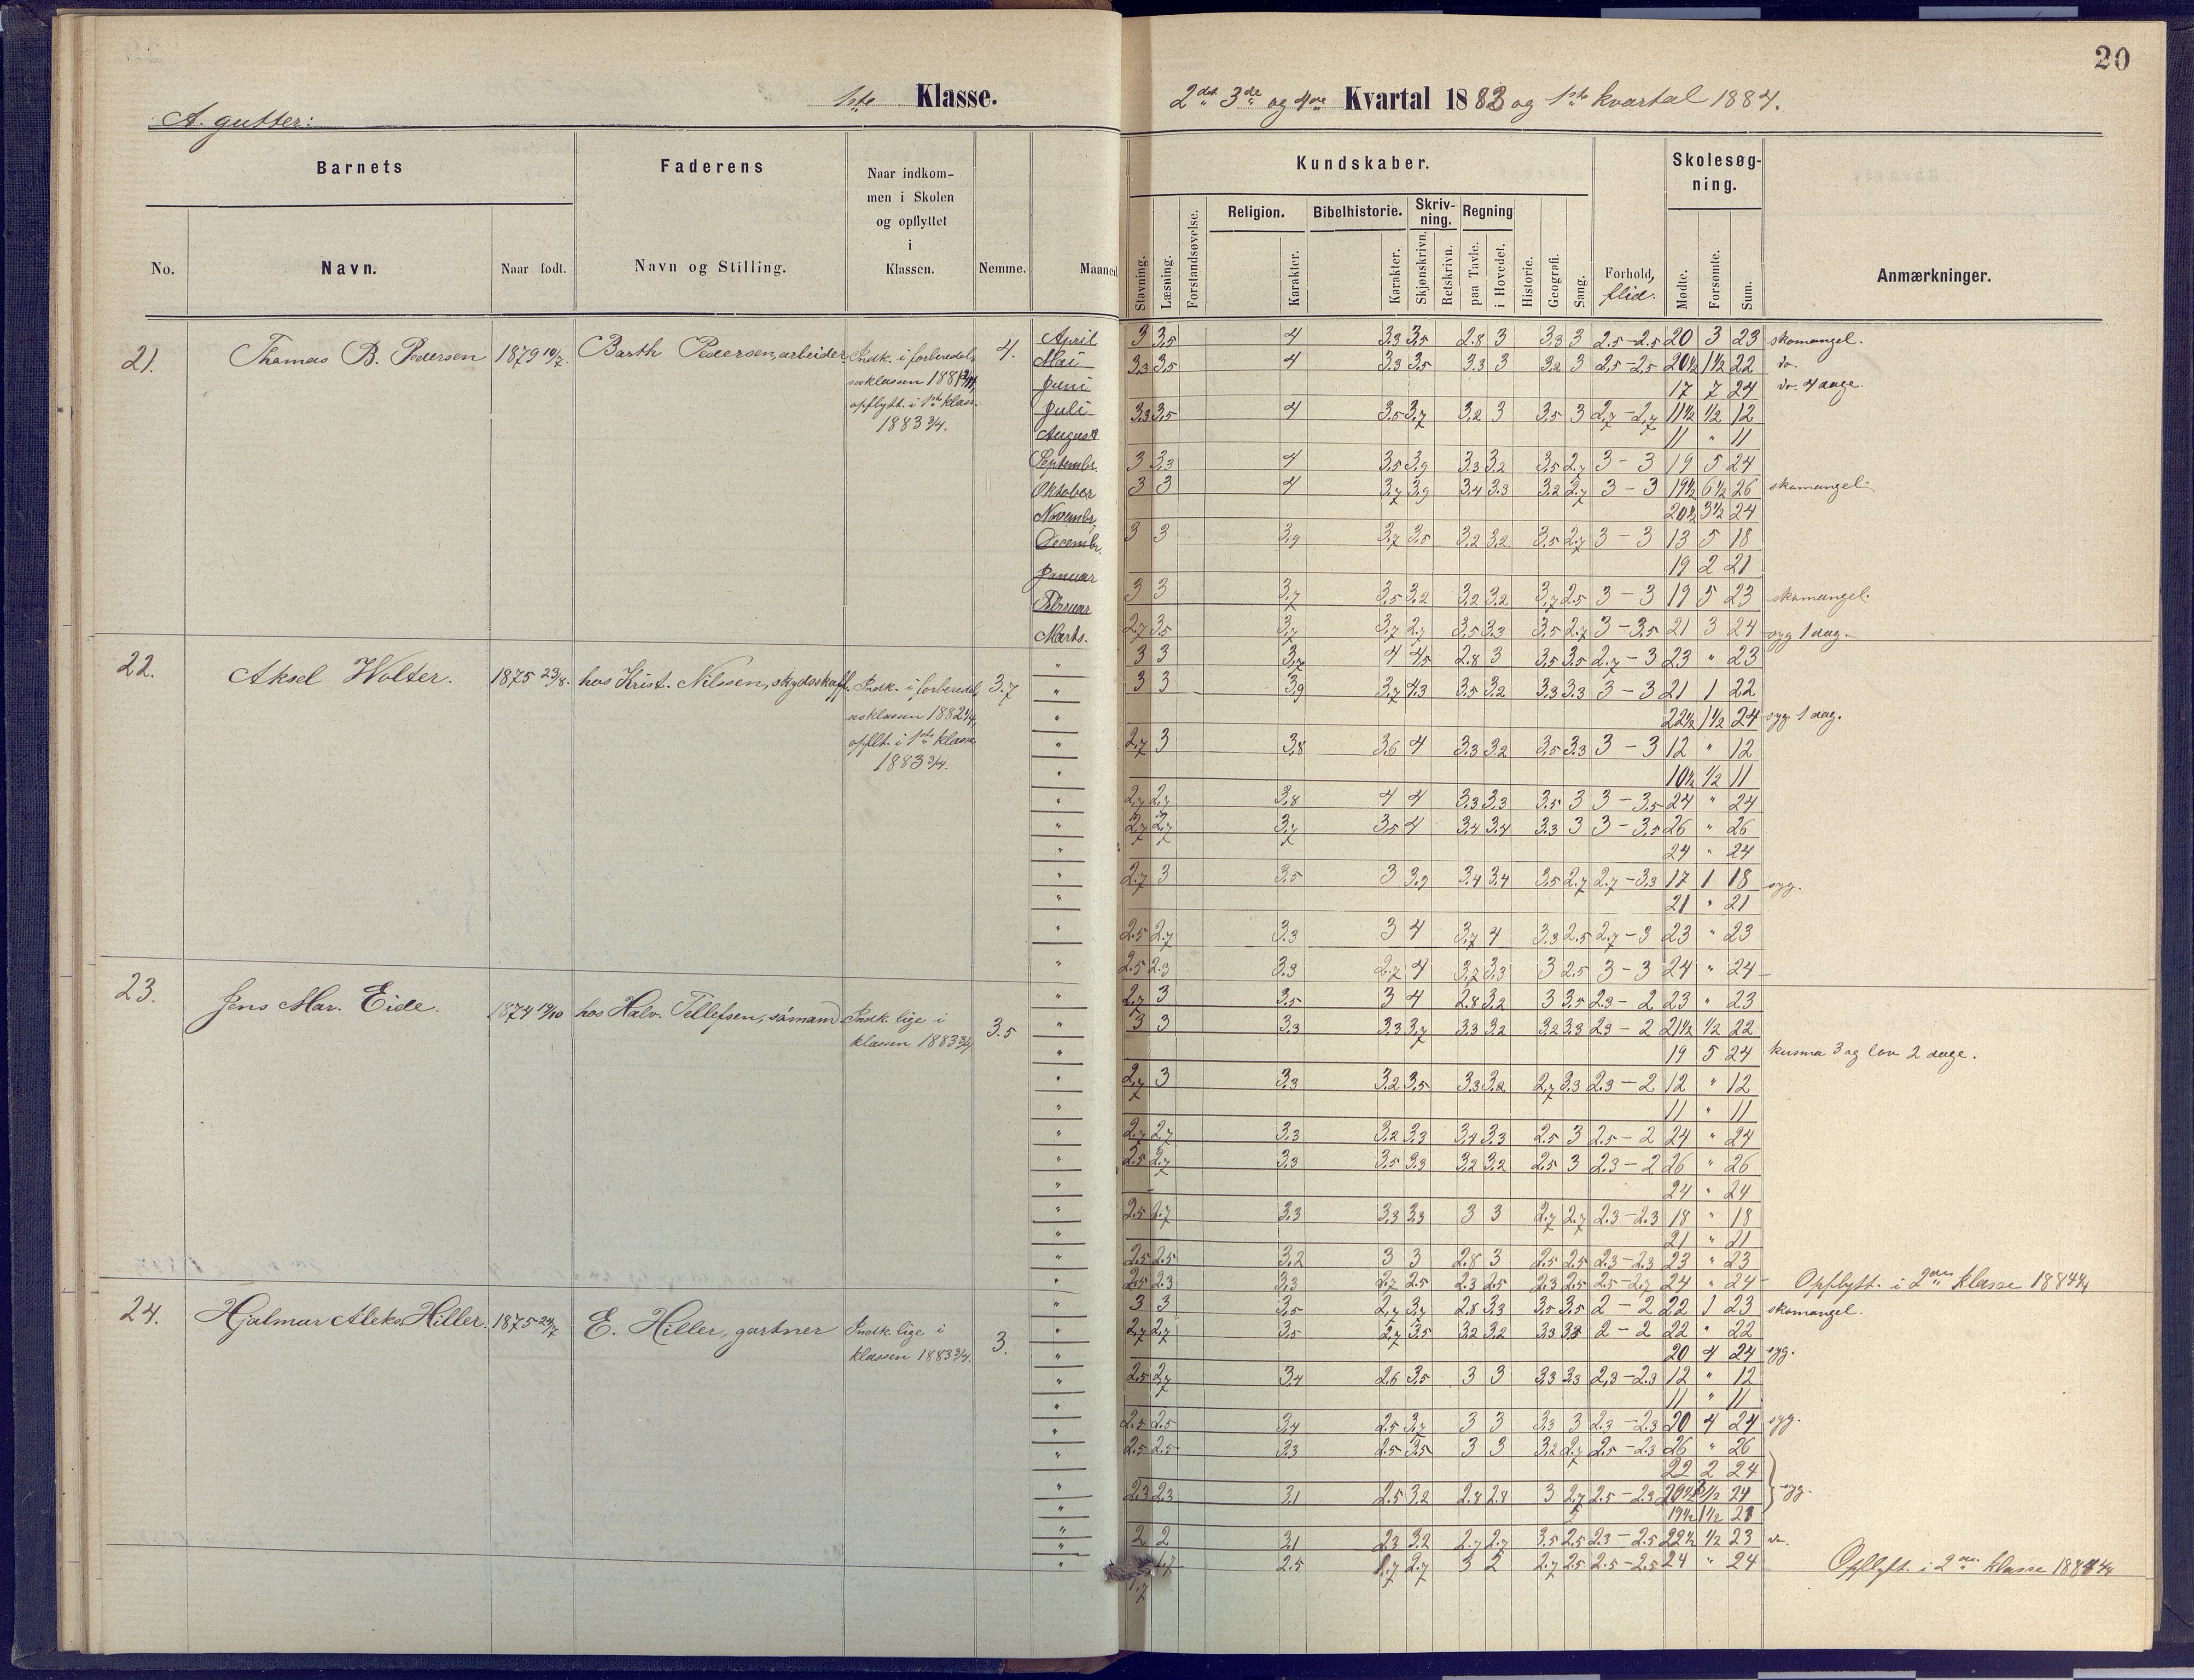 20
A. gutter:
1ste Klasse.
2det 3de og 4de Kvartal 1883 og 1ste kvartal 1884.
Barnets
Faderens
Naar indkom-
men i Skolen
og opflyttet
i
Klassen.
Kundskaber.
Skolesøg-
ning.
Religion. Bibelhistorie. Skriv-
ning. Regning
No. Navn. Naar født. Navn og Stilling. Nemme. Maaned
Stavning. Læsning. Forstandsøvelse. Karakter. Karakter. Skjønskrivn. Retskrivn. paa Tavle. i Hovedet. Historie. Geografi. Sang. Forhold,
flid. Mødte. Forsømte. Sum. Anmærkninger.
21. Thomas B. Pedersen Barth Pedersen, arbeider Indk. i forberedel- 4.
sesklassen
opflytt. i 1ste klasse
1883 3/4.
April 3 3,5 4 3,3 3,5 2.8 3 3,3 3 2.5-2.5 20 3 23 skomangel.
Mai 3,3 3,5 4 3,3 3,5 3.3 3 3,2 3 2,5-2,5 20½ 1½ 22 do.
Juni 17 7 24 do. 4 dage.
Juli 3,3 3,5 4 3,5 3,7 3,2 3 3,5 3 2,7-2,7 11½ ½ 12
August 11 " 11
Septembr. 3 3,3 4 3,5 3,9 3,3 3,2 3,5 2,7 3-3 19 5 24
Oktober 3 3 4 3,7 3,9 3,4 3,3 3,2 2,7 3-3 19½ 6½ 26 skomangel
Novembr. 20½ 3½ 24
Decembr. 3 3 3,9 3,7 3,5 3,2 3,2 3,5 2,7 3-3 13 5 18
Januar 19 2 21
Februar 3 3 3,7 3,5 3,2 3,2 3,2 3,7 2,5 3-3 19 5 23 skomangel.
Marts. 2,7 3,5 3,7 3,7 2,7 3,5 3,3 3,5 2,7 3-3,5 21 3 24 syg 1 dag.
22. Aksel Wolter. 1875 23/8. hos Krist. Nilssen, skydsskaff. Indk. i forberedel- 3.7
sesklassen
opflt. i 1ste klasse
1883 3/4.
3 3 3,7 4 4,5 2.8 3 3,5 3,5 2.7-3 23 " 23
3 3 3,9 3,7 4,3 3,5 3,2 3,3 3,3 3-3 21 1 22
22½ 1½ 24 syg 1 dag.
2,7 3 3,8 3,6 4 3,3 3,2 3,5 3,3 3-3 12 " 12
10½ ½ 11
2,7 2,7 3,8 4 4 3,3 3,3 3,5 3 3-3,5 24 " 24
2,7 2,7 3,7 3,5 4 3,4 3,4 3,3 3 3-3,5 26 " 26
24 " 24
2.7 3 3,5 3 3,9 3,4 3,4 3,5 2,7 2,7-3,3 17 1 18 syg.
21 " 21
2.5 2.7 3.3 3 4 3,7 4 3,3 2.5 2.7-3 23 " 23
2.5 2.3 3.3 2.7 4 3,7 3,3 3 2.5 3-3 24 " 24
23. Jens Mar. Eide. hos Halv. Tellefsen, sømand Indk. lige i 3.5
klassen 1883 3/4
2,7 3 3,5 3 4 2.8 3,2 3 3,5 2,3-2 23 " 23
3 3 3,3 3,3 3,7 3,3 3,2 3,2 3,3 2,3-2 21½ ½ 22
19 5 24 kusma 3 og lov 2 dage.
2,7 3 3,3 3,2 3,5 3,3 3,2 2,7 3,3 2.3-2 12 " 12
11 " 11
2.7 2,7 3,3 3,2 3,3 3,4 3,3 2.5 3 2.5-2 24 " 24
2.5 2.7 3,3 3,5 3,3 3,2 3,2 2.5 3 2.3-2 26 " 26
24 " 24
2.5 2.7 3,3 3,3 3,3 3 3 2.7 2.7 2.3-2.3 18 " 18
21 " 21
2.5 2.5 3,2 3 3 2.8 3 2.5 2.5 2.3-2.3 23 " 23
2.5 2.3 3,3 2.7 2.5 2.3 2.5 2.3 2.5 2.5-2.7 24 " 24 Opflytt. i 2den klasse 1884
24. Hjalmar Aleks Hiller. E. Hiller, gartner Indk. lige i 3.
klassen 1883 3/4.
3 3 3,5 2,7 3,7 2.8 3,3 3,5 3,5 2-2 22 1 23 skomangel.
2,7 2,7 3,5 2,7 3,5 3,2 3,2 3,3 3,3 2-2 22 " 22
20 4 24 syg.
2.5 2,7 3,4 2.6 3,5 3 3 3,3 3,3 2,3-2.3 12 " 12
11 " 11
2.5 2.5 3,4 2.5 3,7 3 3 3,3 3 2.3-2.3 20 4 24 syg.
2.5 2.5 3.3 2.5 3,5 3 3 3,2 2,7 2,5-2,3 26 " 26
22 2 24
2.3 2.3 3,1 2.5 3,2 2.8 2.8 3 2,7 2.5-2.3 24 syg.
19½ 1½ 21
2 2 3,1 2.3 3,2 2.7 2.7 3.5 2.5 2.3-2.5 22½ ½ 23 do.
1.7 1.7 2.5 1.7 2.7 3 2 2.7 2.5 2.5-2.5 24 " 24 Opflytt. i 2den klasse